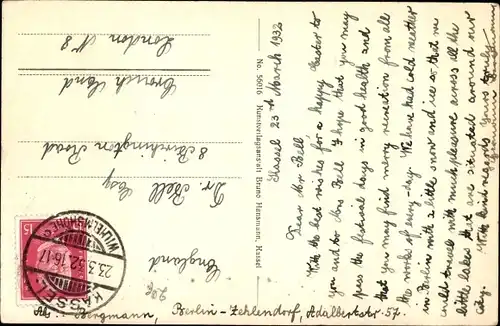 Kassel 23rd March 1932
Dear Mr Bell
With the best wishes for a happy Easter to
you and to Mrs Bell I hope that you may
pass the festival days in good health and
that you may find merry recreation from all
the works of every-day. We have had cold weather
in Berlin with a little snow and ice so that we
could travel with much pleasure across all the
little lakes that are situated around our
city. With kind regards Yours truly
No. 56016 Kunstverlagsanstalt Bruno Hansmann, Kassel
Dr. Bell Esq
8 Birchington Road
Crouch End
London N 8
England
15
KASSEL
WILHELMSHÖHE
23.3.32.16-17
Abs: Bergmann, Berlin-Zehlendorf, Adalbertstr. 57.